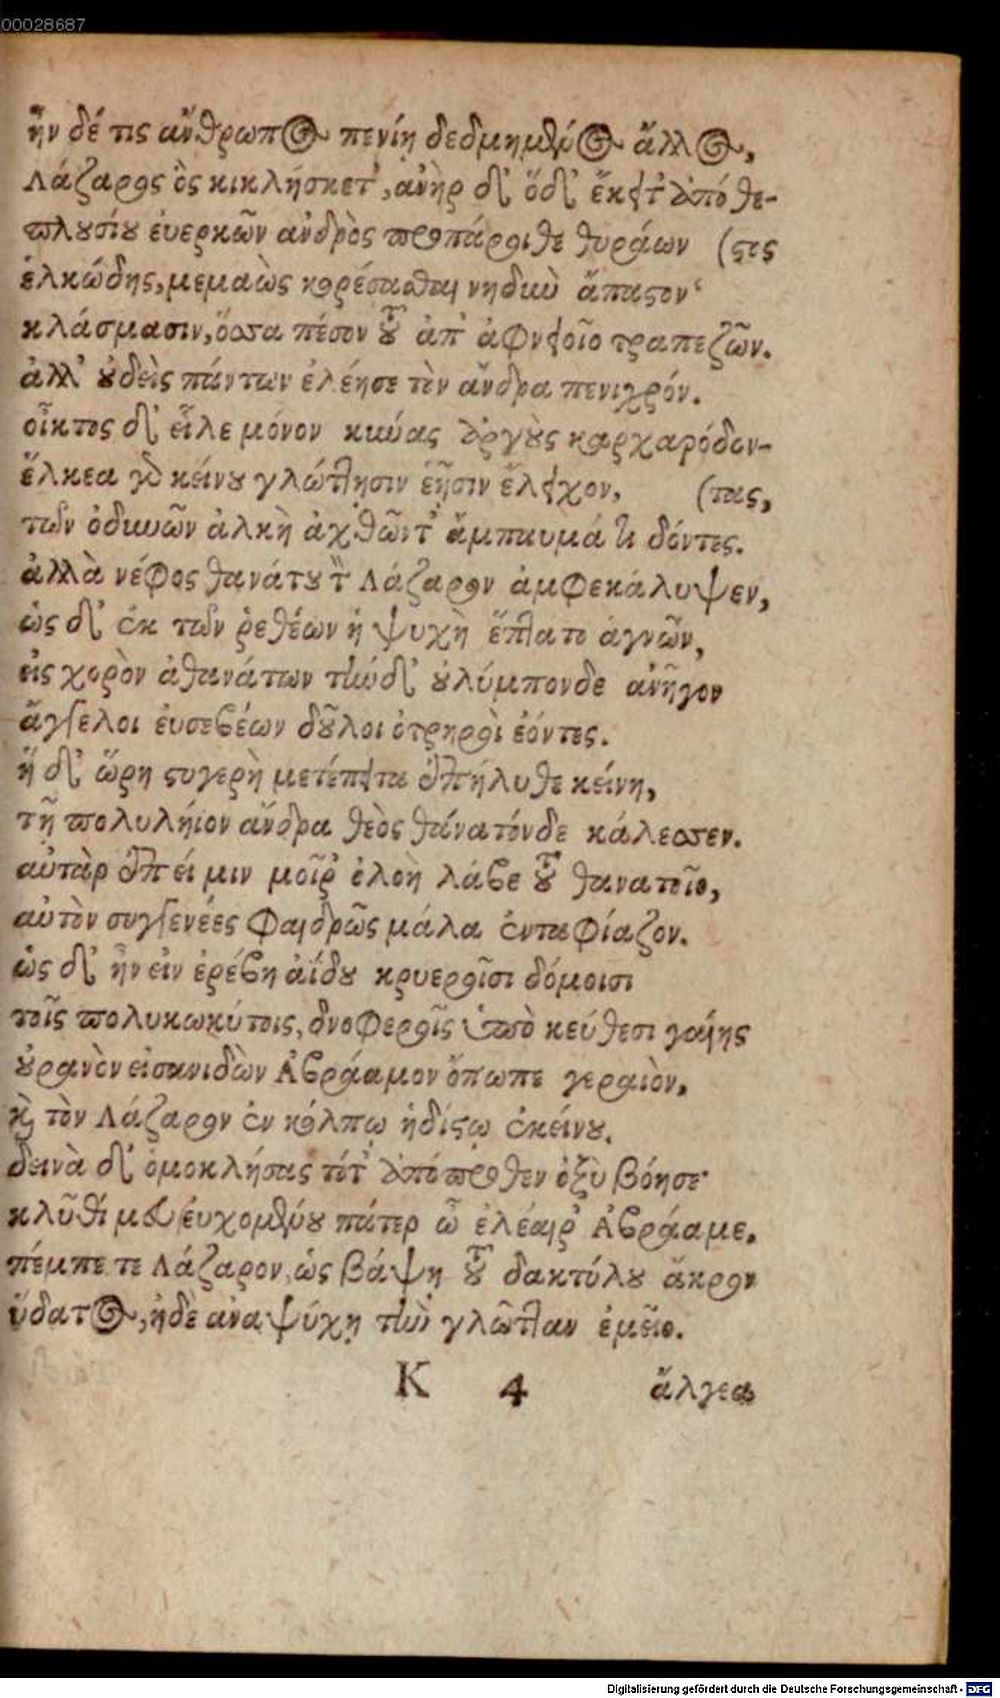 00028687
ἦν δέ τις ἄνθρωπος πενίῃ δεδμημένος ἄλλος,
Λάζαρος ὃς κικλήσκετ', ἀνὴρ δ' ὅδ' ἔκειτ' ἀπόθε-
πλουσίου εὐερκῶν ἀνδρὸς προπάροιθε θυράων (στς
ἑλκώδης, μεμαὼς κορέσασθαι νηδιὺ ἄπαστον
κλάσμασιν, ὅσσα πέσον τοῦ ἀπ' ἀφνειοῖο τραπεζῶν.
ἀλλ' οὐδεὶς πάντων ἐλέησε τὸν ἄνδρα πενιχρόν.
οἶκτος δ' εἷλε μόνον κύνας ἀργοὺς καρχαρόδον-
ἕλκεα γὰρ κείνου γλώττῃσιν ἑῇσιν ἔλειχον, (τας,
τῶν ὀδυνῶν ἀλκὴ ἀχθῶντ' ἄμπαυμά τι δόντες.
ἀλλὰ νέφος θανάτου τὸν Λάζαρον ἀμφεκάλυψεν,
ὡς δ' ἐκ τῶν ῥεθέων ἡ ψυχὴ ἔπτατο ἁγνῶν,
εἰς χορὸν ἀθανάτων τὴνδ' οὐλύμπονδε ἀνῆγον
ἄγγελοι εὐσεβέων δοῦλοι ὀτρηροὶ ἐόντες.
ἡ δ' ὥρη στυγερὴ μετέπειτα ἐπήλυθε κείνη,
τῇ πολυλήιον ἄνδρα θεὸς θάνατόνδε κάλεσσεν.
αὐτὰρ ἐπεί μιν μοῖρ' ὀλοὴ λάβε τοῦ θανατοῖο,
αὐτὸν συγγενέες φαιδρῶς μάλα ἐνταφίαζον.
ὡς δ' ἦν εἰν ἐρέβη ἀίδου κρυεροῖσι δόμοισι
τοῖς πολυκωκύτοις, δνοφεροῖς ὑπὸ κεύθεσι γαίης
οὐρανὸν εἰσανιδὼν Ἀβράαμον ὄπωπε γεραιὸν,
καὶ τὸν Λάζαρον ἐν κόλπῳ ἡδίστῳ ἐκείνου.
δεινὰ δ' ὁμοκλήσας τότ' ἀπόπροθεν ὀξὺ βόησε·
κλῦθί μευ εὐχομένου πάτερ ὦ ἐλέαιρ' Ἀβράαμε.
πέμπε τε Λάζαρον, ὡς βάψῃ τοῦ δακτύλου ἄκρον
ὕδατος, ἠδὲ ἀναψύχῃ τὴν γλῶτταν ἐμεῖο.
K 4 ἄλγεα
Digitalisierung gefördert durch die Deutsche Forschungsgemeinschaft - DFG